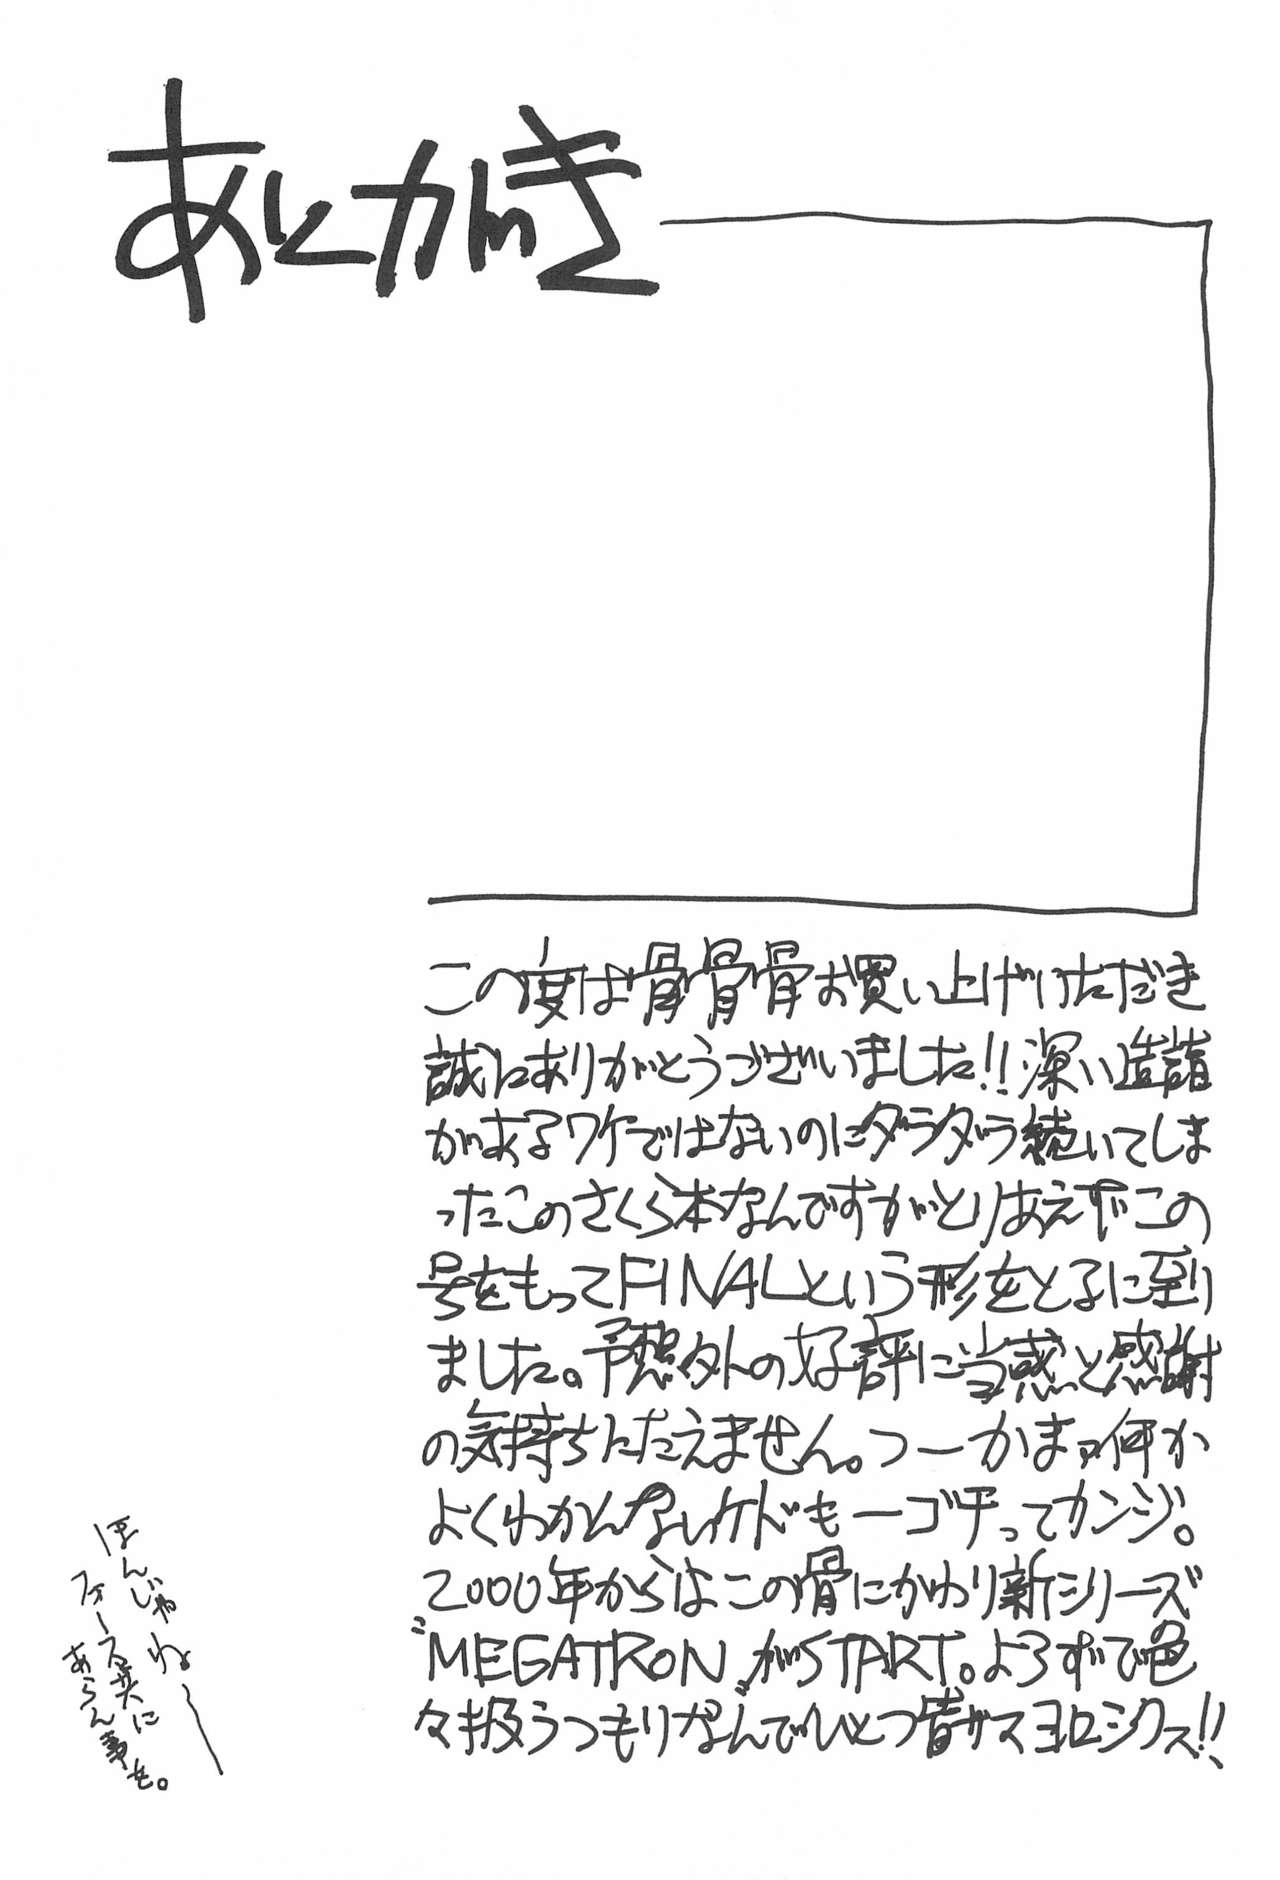 あとがき
この度は骨骨骨お買い上げいただき
誠にありがとうございました!!深い造詣
があるワケではないのにダラダラ続いてしま
ったこのさくら本なんですがとりあえずこの
号をもってFINALという形をとるに至り
ました。予想外の好評に当惑と感謝
の気持ちにたえません。つーかまァ何か
よくわかんないケドも一ゴチってカンジ。
2000年からはこの骨にかわり新シリーズ
“MEGATRON„がSTART。よろずで色
々扱うつもりなんでひとつ皆サマヨロシクス!!
ほんじゃねー
フォース共に
あらん事を。